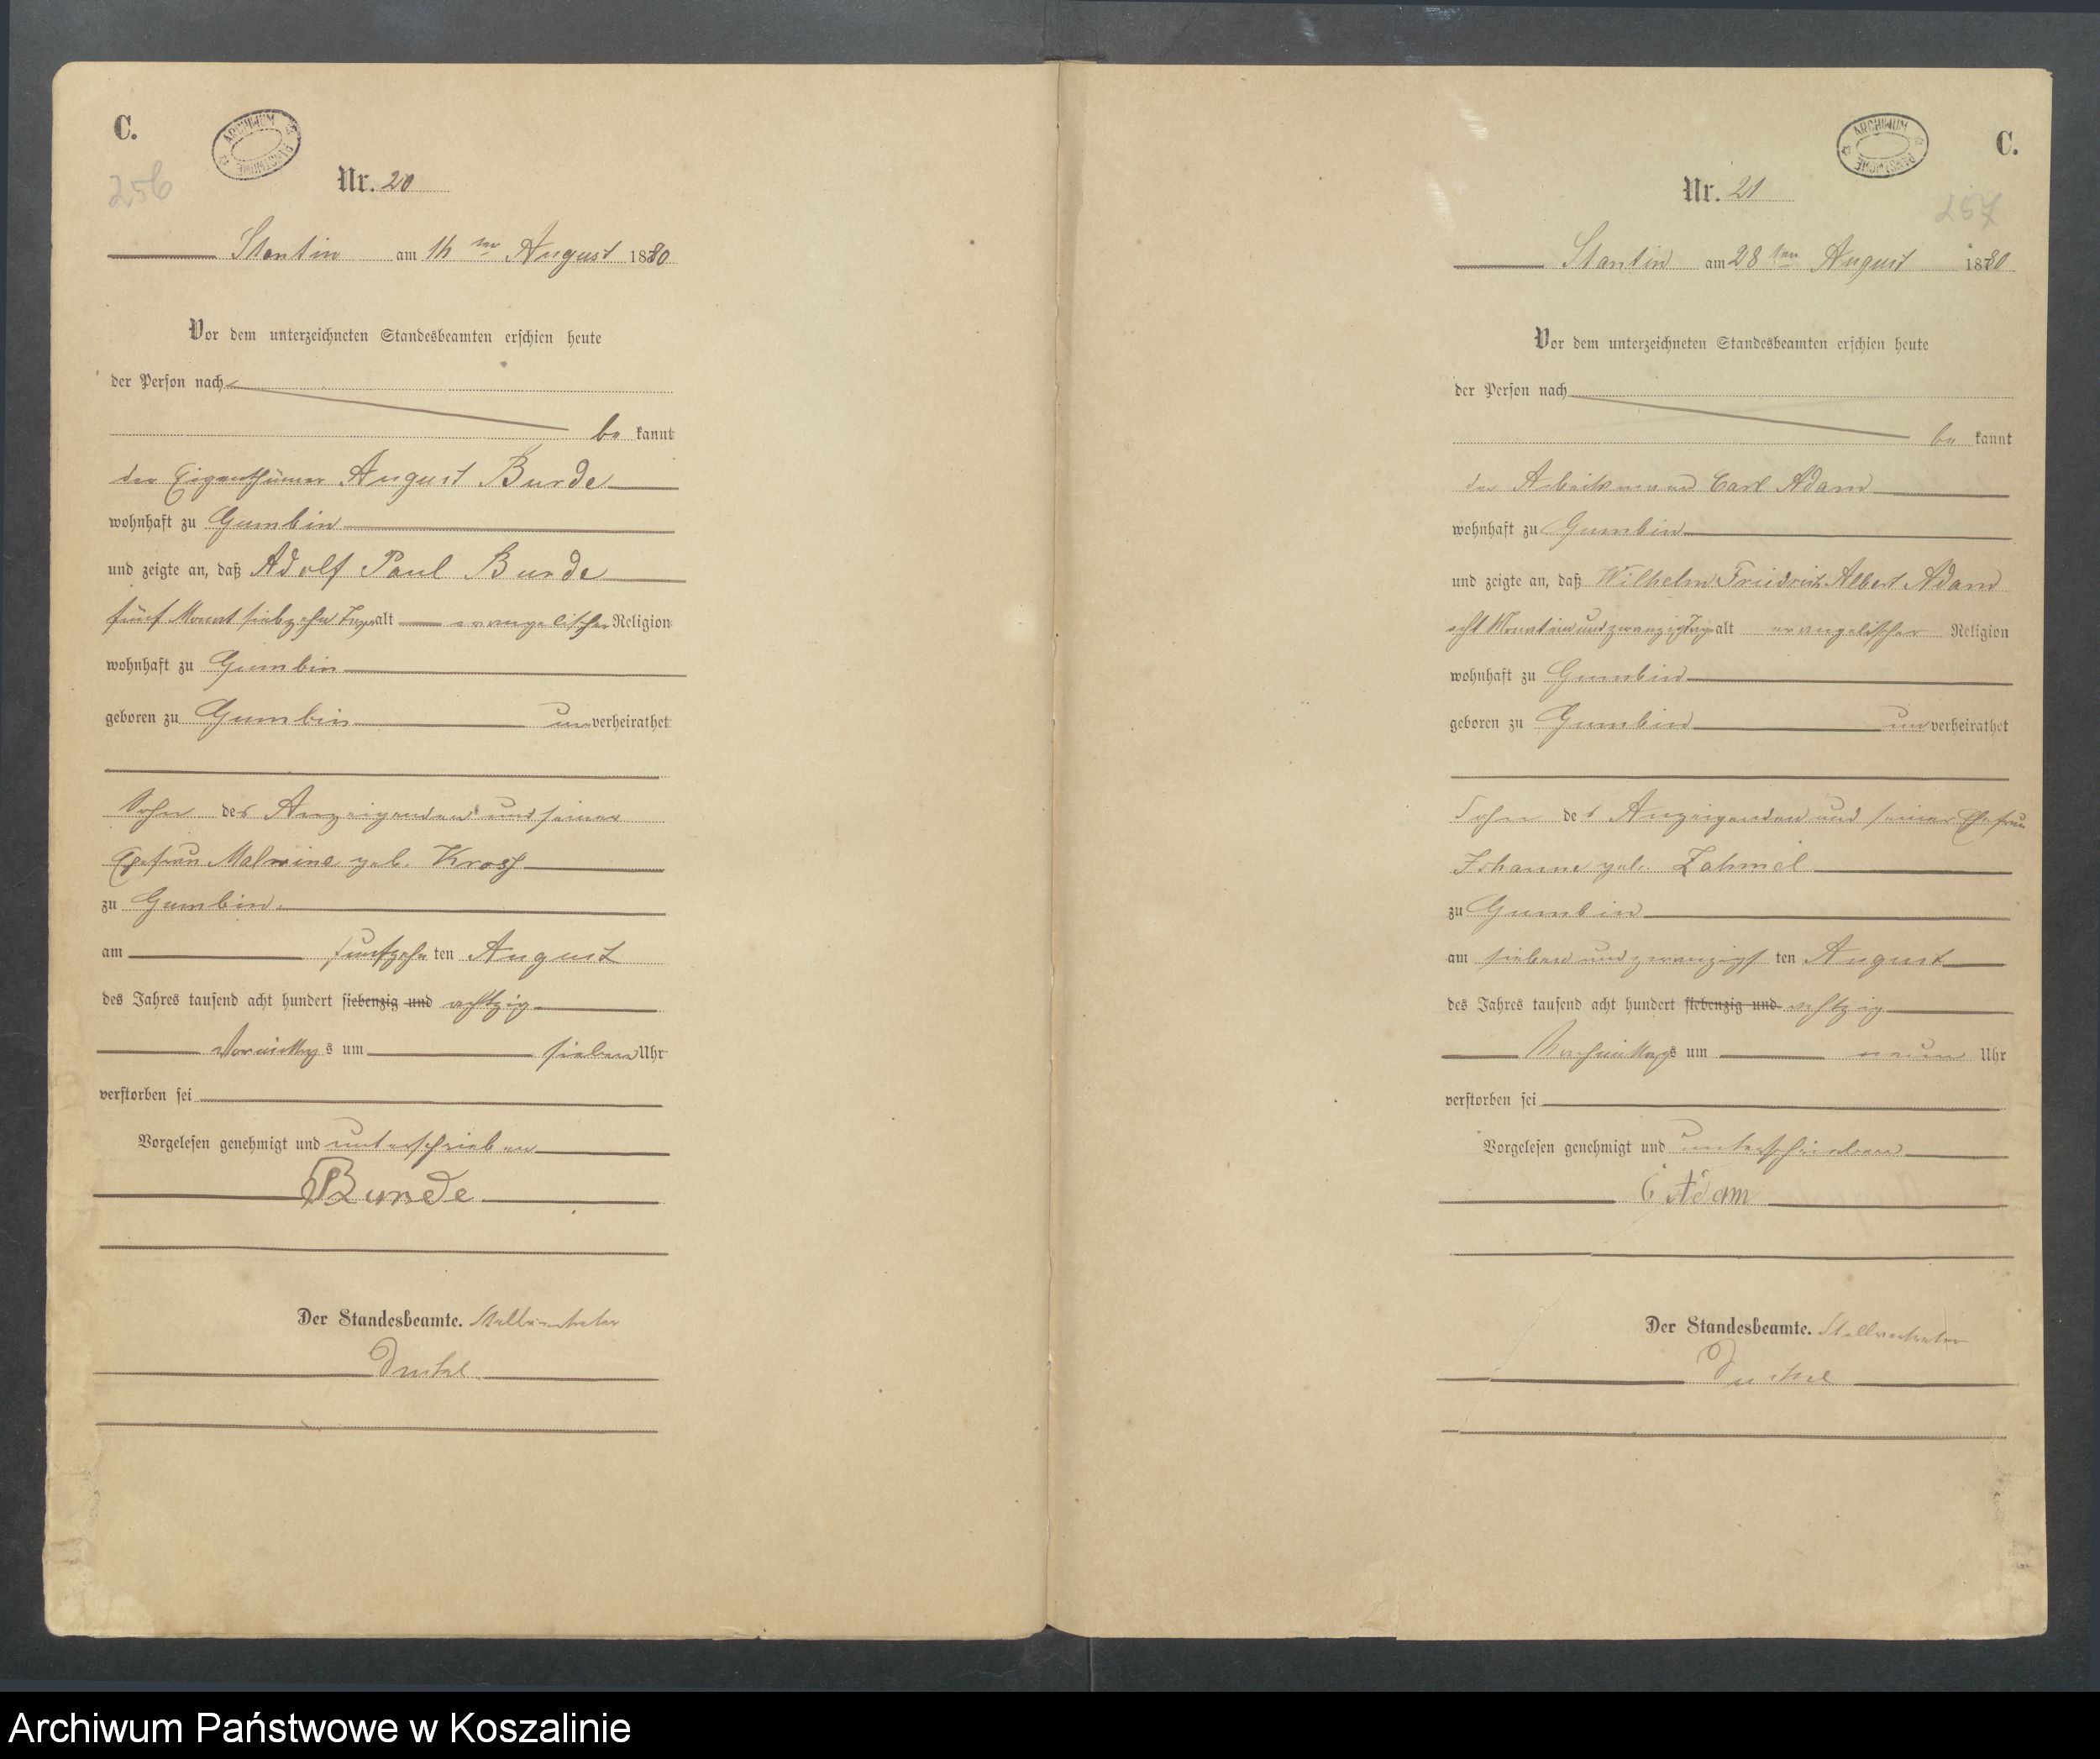 C.
ARCHIWUM PAŃSTWOWE
256
Nr. 20
Stantin am 16ten August 1880
Vor dem unterzeichneten Standesbeamten erschien heute
der Person nach
be kannt
der Eigenthümer August Burde
wohnhaft zu Gumbin
und zeigte an, daß Adolf Paul Burde
fünf Monat siebzehn Tage alt evangelischer Religion
wohnhaft zu Gumbin
geboren zu Gumbin unverheirathet
Sohn des Anzeigenden und seiner
Ehefrau Malwine geb.
zu Gumbin
am funfzehnten August
des Jahres tausend acht hundert siebenzig und achtzig
Vormittags um sieben Uhr
verstorben sei
Vorgelesen genehmigt und unterschrieben
Burde
Der Standesbeamte. Stellvertreter
C.
ARCHIWUM PAŃSTWOWE
257
Nr. 21
Stantin am 28ten August 1880
Vor dem unterzeichneten Standesbeamten erschien heute
der Person nach
be kannt
der Arbeitsmann Carl Adam
wohnhaft zu Gumbin
und zeigte an, daß Wilhelm Friedrich Albert Adam
acht Monat ein und zwanzig Tage alt evangelischer Religion
wohnhaft zu Gumbin
geboren zu Gumbin unverheirathet
Sohn des Anzeigenden und seiner Ehefrau
Johanne geb.
zu Gumbin
am sieben und zwanzigsten August
des Jahres tausend acht hundert siebenzig und achtzig
Nachmittags um neun Uhr
verstorben sei
Vorgelesen genehmigt und unterschrieben
C Adam
Der Standesbeamte. Stellvertreter
Archiwum Państwowe w Koszalinie